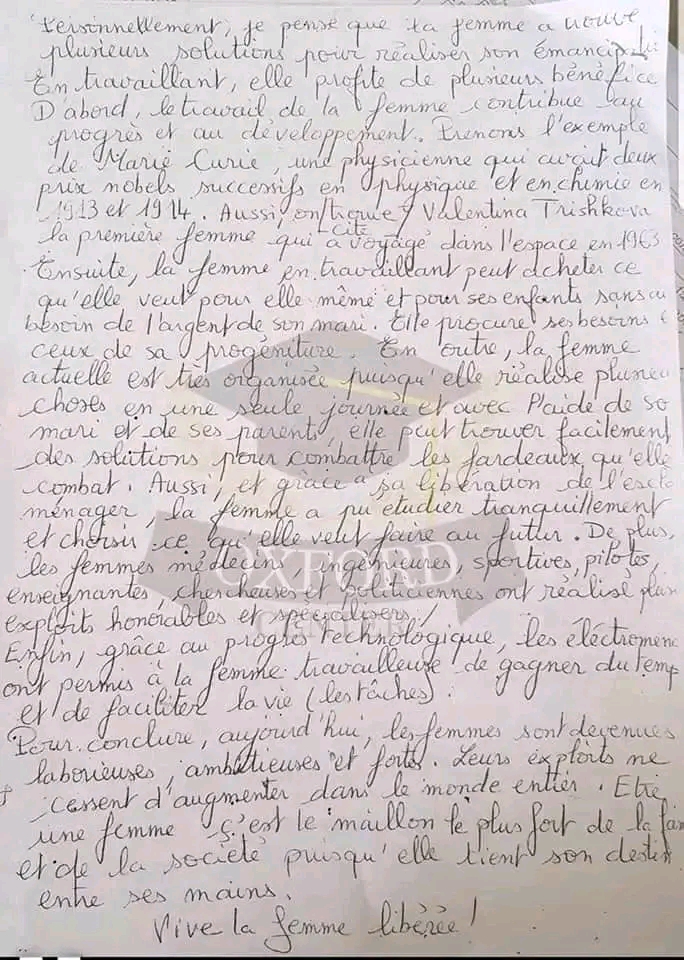 Personnellement, je pense que la femme a trouvé
plusieurs solutions pour réaliser son émancipati
En travaillant, elle profite de plusieurs bénéfice
D'abord, le travail de la femme contribue au
progrès et au développement. Prenons l'exemple
de Marie Curie, une physicienne qui avait deux
prix nobels successifs en physique et en chimie en
1913 et 1914. Aussi, on trouve / Valentina Trishkova
cite
la première femme qui a voyagé dans l'espace en 1963
Ensuite, la femme en travaillant peut acheter ce
qu'elle veut pour elle même et pour ses enfants sans au
besoin de l'argent de son mari. Elle procure ses besoins e
ceux de sa progéniture. En outre, la femme
actuelle est très organisée puisqu'elle réalise plusieu
choses en une seule journée et avec l'aide de so
mari et de ses parents, elle peut trouver facilement
des solutions pour combattre les fardeaux qu'elle
combat. Aussi, et grâce à sa libération de l'escla
ménager, la femme a pu etudier tranquillement
et choisir ce qu'elle veut faire au futur. De plus,
les femmes médecins, ingénieures, sportives, pilotes,
enseignantes, chercheuses et politiciennes ont réalisé plus
exploits honorables et spécialisers /
Enfin, grâce au progrès technologique, les éléctromena
ont permis à la femme travailleuse de gagner du temp
et de faciliter la vie (les tâches).
Pour conclure, aujourd'hui, les femmes sont devenues
laborieuses, ambitieuses et fortes. Leurs exploits ne
cessent d'augmenter dans le monde entier. Etre
une femme c'est le maillon le plus fort de la fam
et de la société puisqu'elle tient son destin
entre ses mains.
Vive la femme libérée !
OXFORD
CENTER